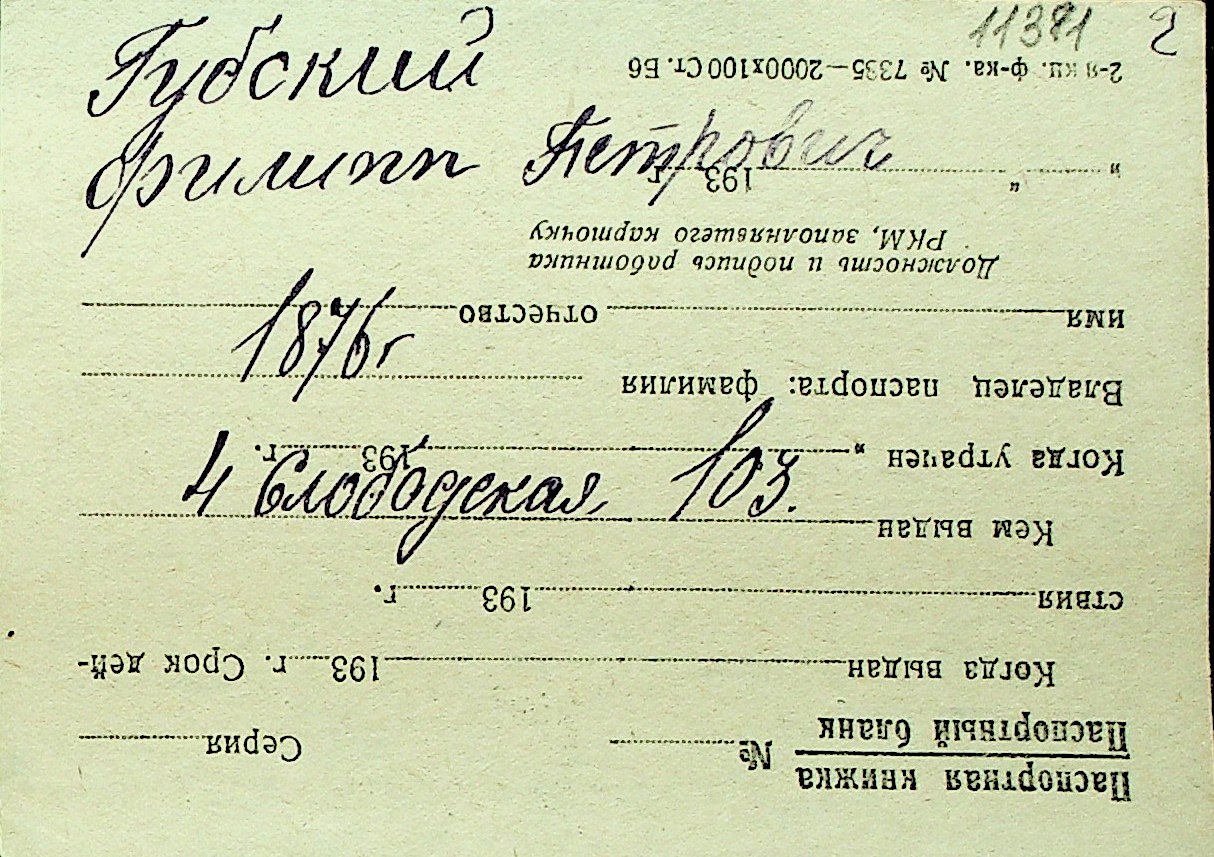 11381 2
Губский
Филипп Петрович
1876 г
4 Слободская 103.
Паспортная книжка
Паспортный бланк
№ Серия
Когда выдан 193 г. Срок дей-
ствия 193 г.
Кем выдан
Когда утрачен „ 193 г.
Владелец паспорта: фамилия
имя отчество
Должность и подпись работника
РКМ, заполнявшего карточку
„ “ 193 г
2-я кн. ф-ка. № 7335—2000х100 Ст. Б6